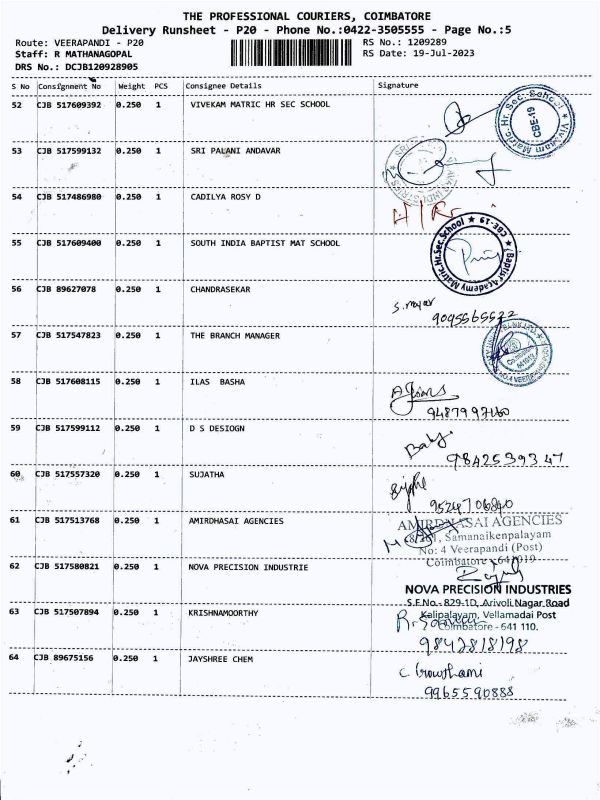 THE PROFESSIONAL COURIERS, COIMBATORE
Delivery Runsheet - P20 - Phone No.:0422-3505555 - Page No.:5
Route: VEERAPANDI - P20 RS No.: 1209289
Staff: R MATHANAGOPAL RS Date: 19-Jul-2023
DRS No.: DCJB120928905
S No Consignment No Weight PCS Consignee Details Signature
52 CJB 517609392 0.250 1 VIVEKAM MATRIC HR SEC SCHOOL
Vivekam Matric. Hr. Sec. School ★ CBE-19
53 CJB 517599132 0.250 1 SRI PALANI ANDAVAR
54 CJB 517486980 0.250 1 CADILYA ROSY D
55 CJB 517609400 0.250 1 SOUTH INDIA BAPTIST MAT SCHOOL
(Baptist Academy Matric.Hr.Sec.School ★ CBE-19
56 CJB 89627078 0.250 1 CHANDRASEKAR
9095565522
57 CJB 517547823 0.250 1 THE BRANCH MANAGER
58 CJB 517608115 0.250 1 ILAS BASHA
59 CJB 517599112 0.250 1 D S DESIOGN
9842539347
60 CJB 517557320 0.250 1 SUJATHA
9524706840
61 CJB 517513768 0.250 1 AMIRDHASAI AGENCIES
AMIRDHASAI AGENCIES
Samanaikenpalayam
No: 4 Veerapandi (Post)
Coimbatore - 641019
62 CJB 517580821 0.250 1 NOVA PRECISION INDUSTRIE
NOVA PRECISION INDUSTRIES
S.F.No.- 829-1D, Arivoli Nagar Road
Kalipalayam, Vellamadai Post
Coimbatore - 641 110.
63 CJB 517507894 0.250 1 KRISHNAMOORTHY
9842818198
64 CJB 89675156 0.250 1 JAYSHREE CHEM
C Gowthami
9965590888